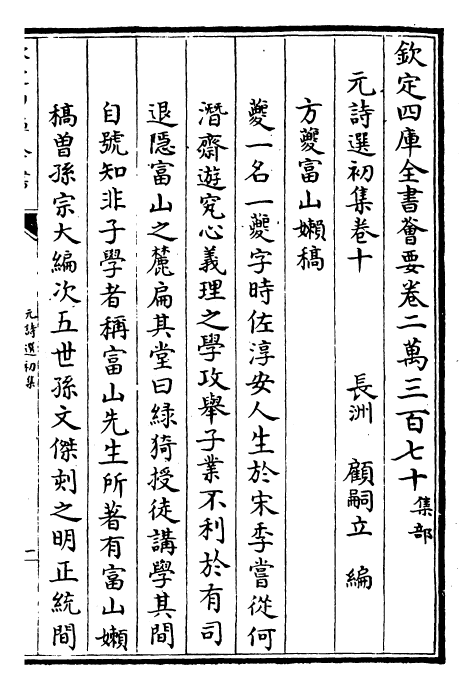 欽定四庫全書薈要卷二萬三百七十集部
元詩選初集卷十
長洲 顧嗣立 編
方夔富山嬾稿
夔一名一夔字時佐淳安人生於宋季嘗從何
潛齋遊究心義理之學攻舉子業不利於有司
退隱富山之麓扁其堂曰綠猗授徒講學其間
自號知非子學者稱富山先生所著有富山嬾
稿曾孫宗大編次五世孫文傑刻之明正統間
元詩選初集
一